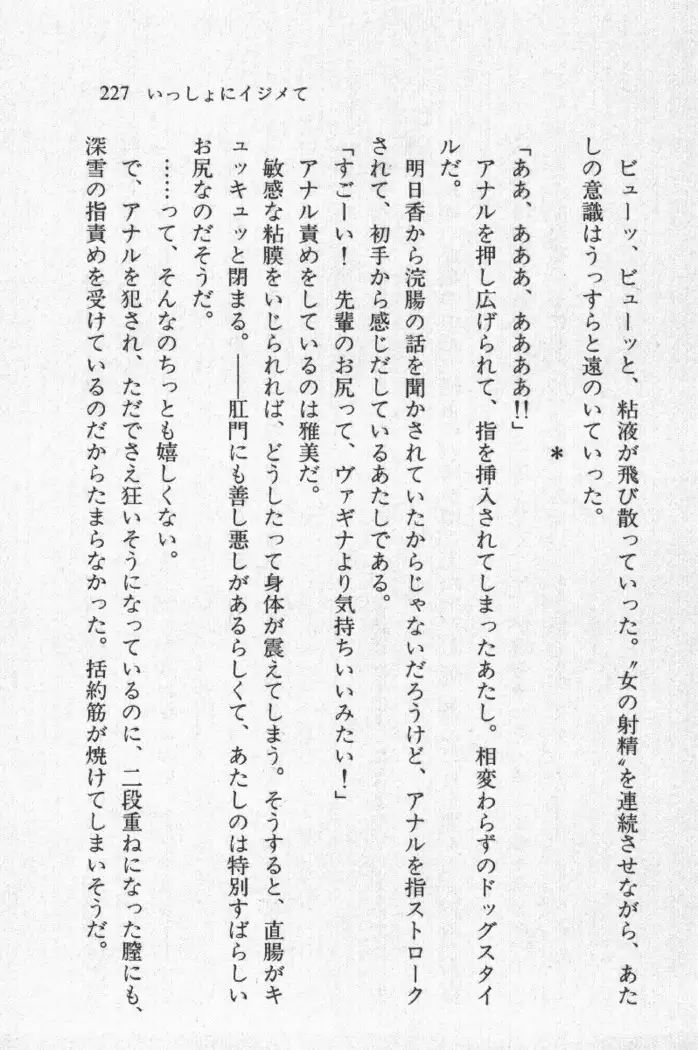 227 いっしょにイジメて
ビューッ、ビューッと、粘液が飛び散っていった。〝女の射精〟を連続させながら、あた
しの意識はうっすらと遠のいていった。
*
「ああ、あああ、ああああ!!」
アナルを押し広げられて、指を挿入されてしまったあたし。相変わらずのドッグスタイ
ルだ。
明日香から浣腸の話を聞かされていたからじゃないだろうけど、アナルを指ストローク
されて、初手から感じだしているあたしである。
「すごーい! 先輩のお尻って、ヴァギナより気持ちいいみたい!」
アナル責めをしているのは雅美だ。
敏感な粘膜をいじられれば、どうしたって身体が震えてしまう。そうすると、直腸がキ
ュッキュッと閉まる。――肛門にも善し悪しがあるらしくて、あたしのは特別すばらしい
お尻なのだそうだ。
……って、そんなのちっとも嬉しくない。
で、アナルを犯され、ただでさえ狂いそうになっているのに、二段重ねになった膣にも、
深雪の指責めを受けているのだからたまらなかった。括約筋が焼けてしまいそうだ。